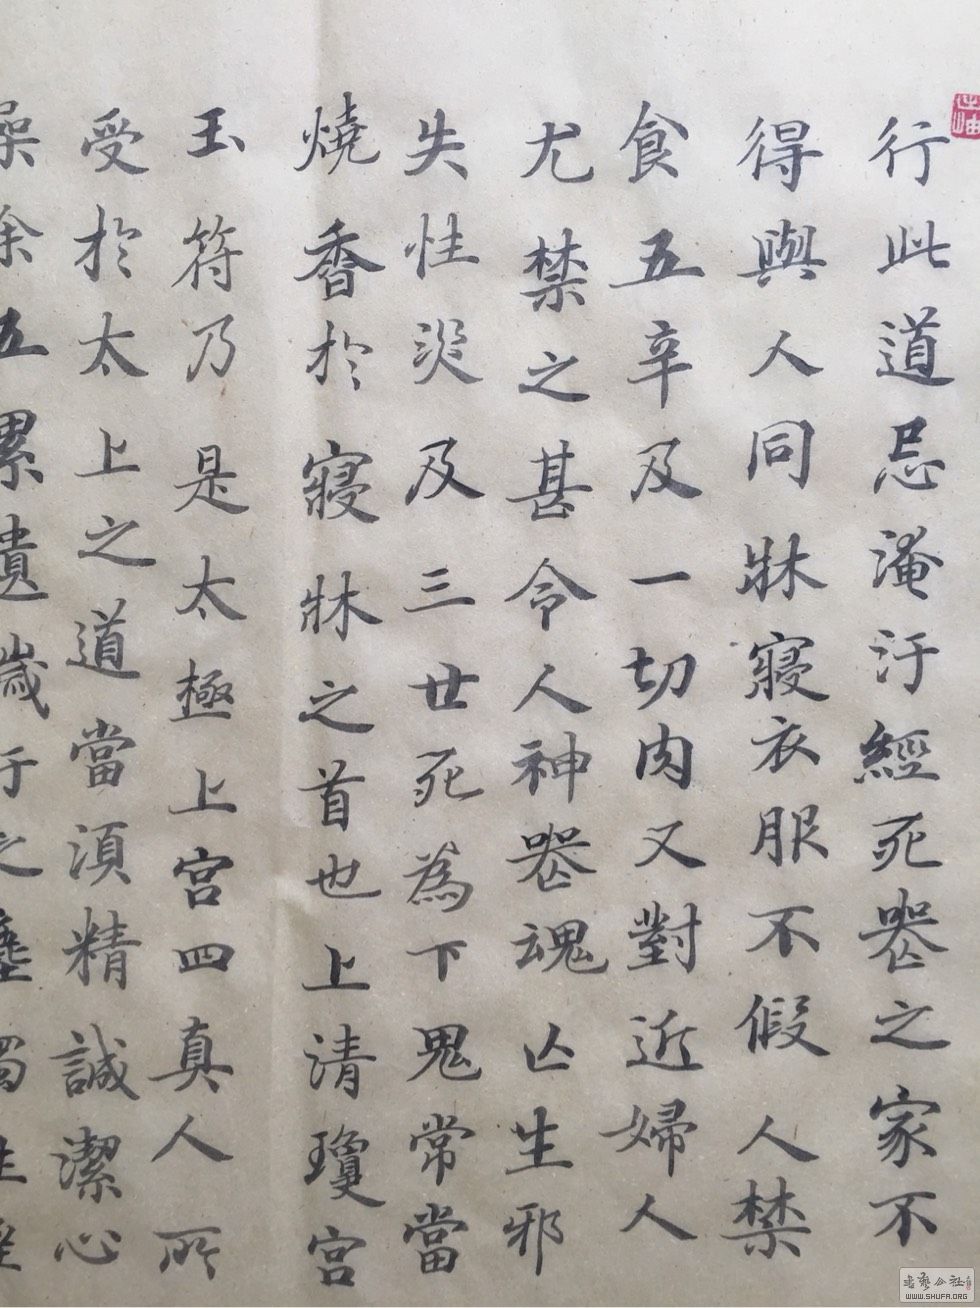 行此道忌淹汙經死喪之家不
得與人同牀寢衣服不假人禁
食五辛及一切肉又對近婦人
尤禁之甚令人神喪魂亡生邪
失性災及三世死為下鬼常當
燒香於寢牀之首也上清瓊宮
玉符乃是太極上宮四真人所
受於太上之道當須精誠潔心
澡除五累遺歲行之塵濁
書藝公社
WWW.SHUFA.ORG